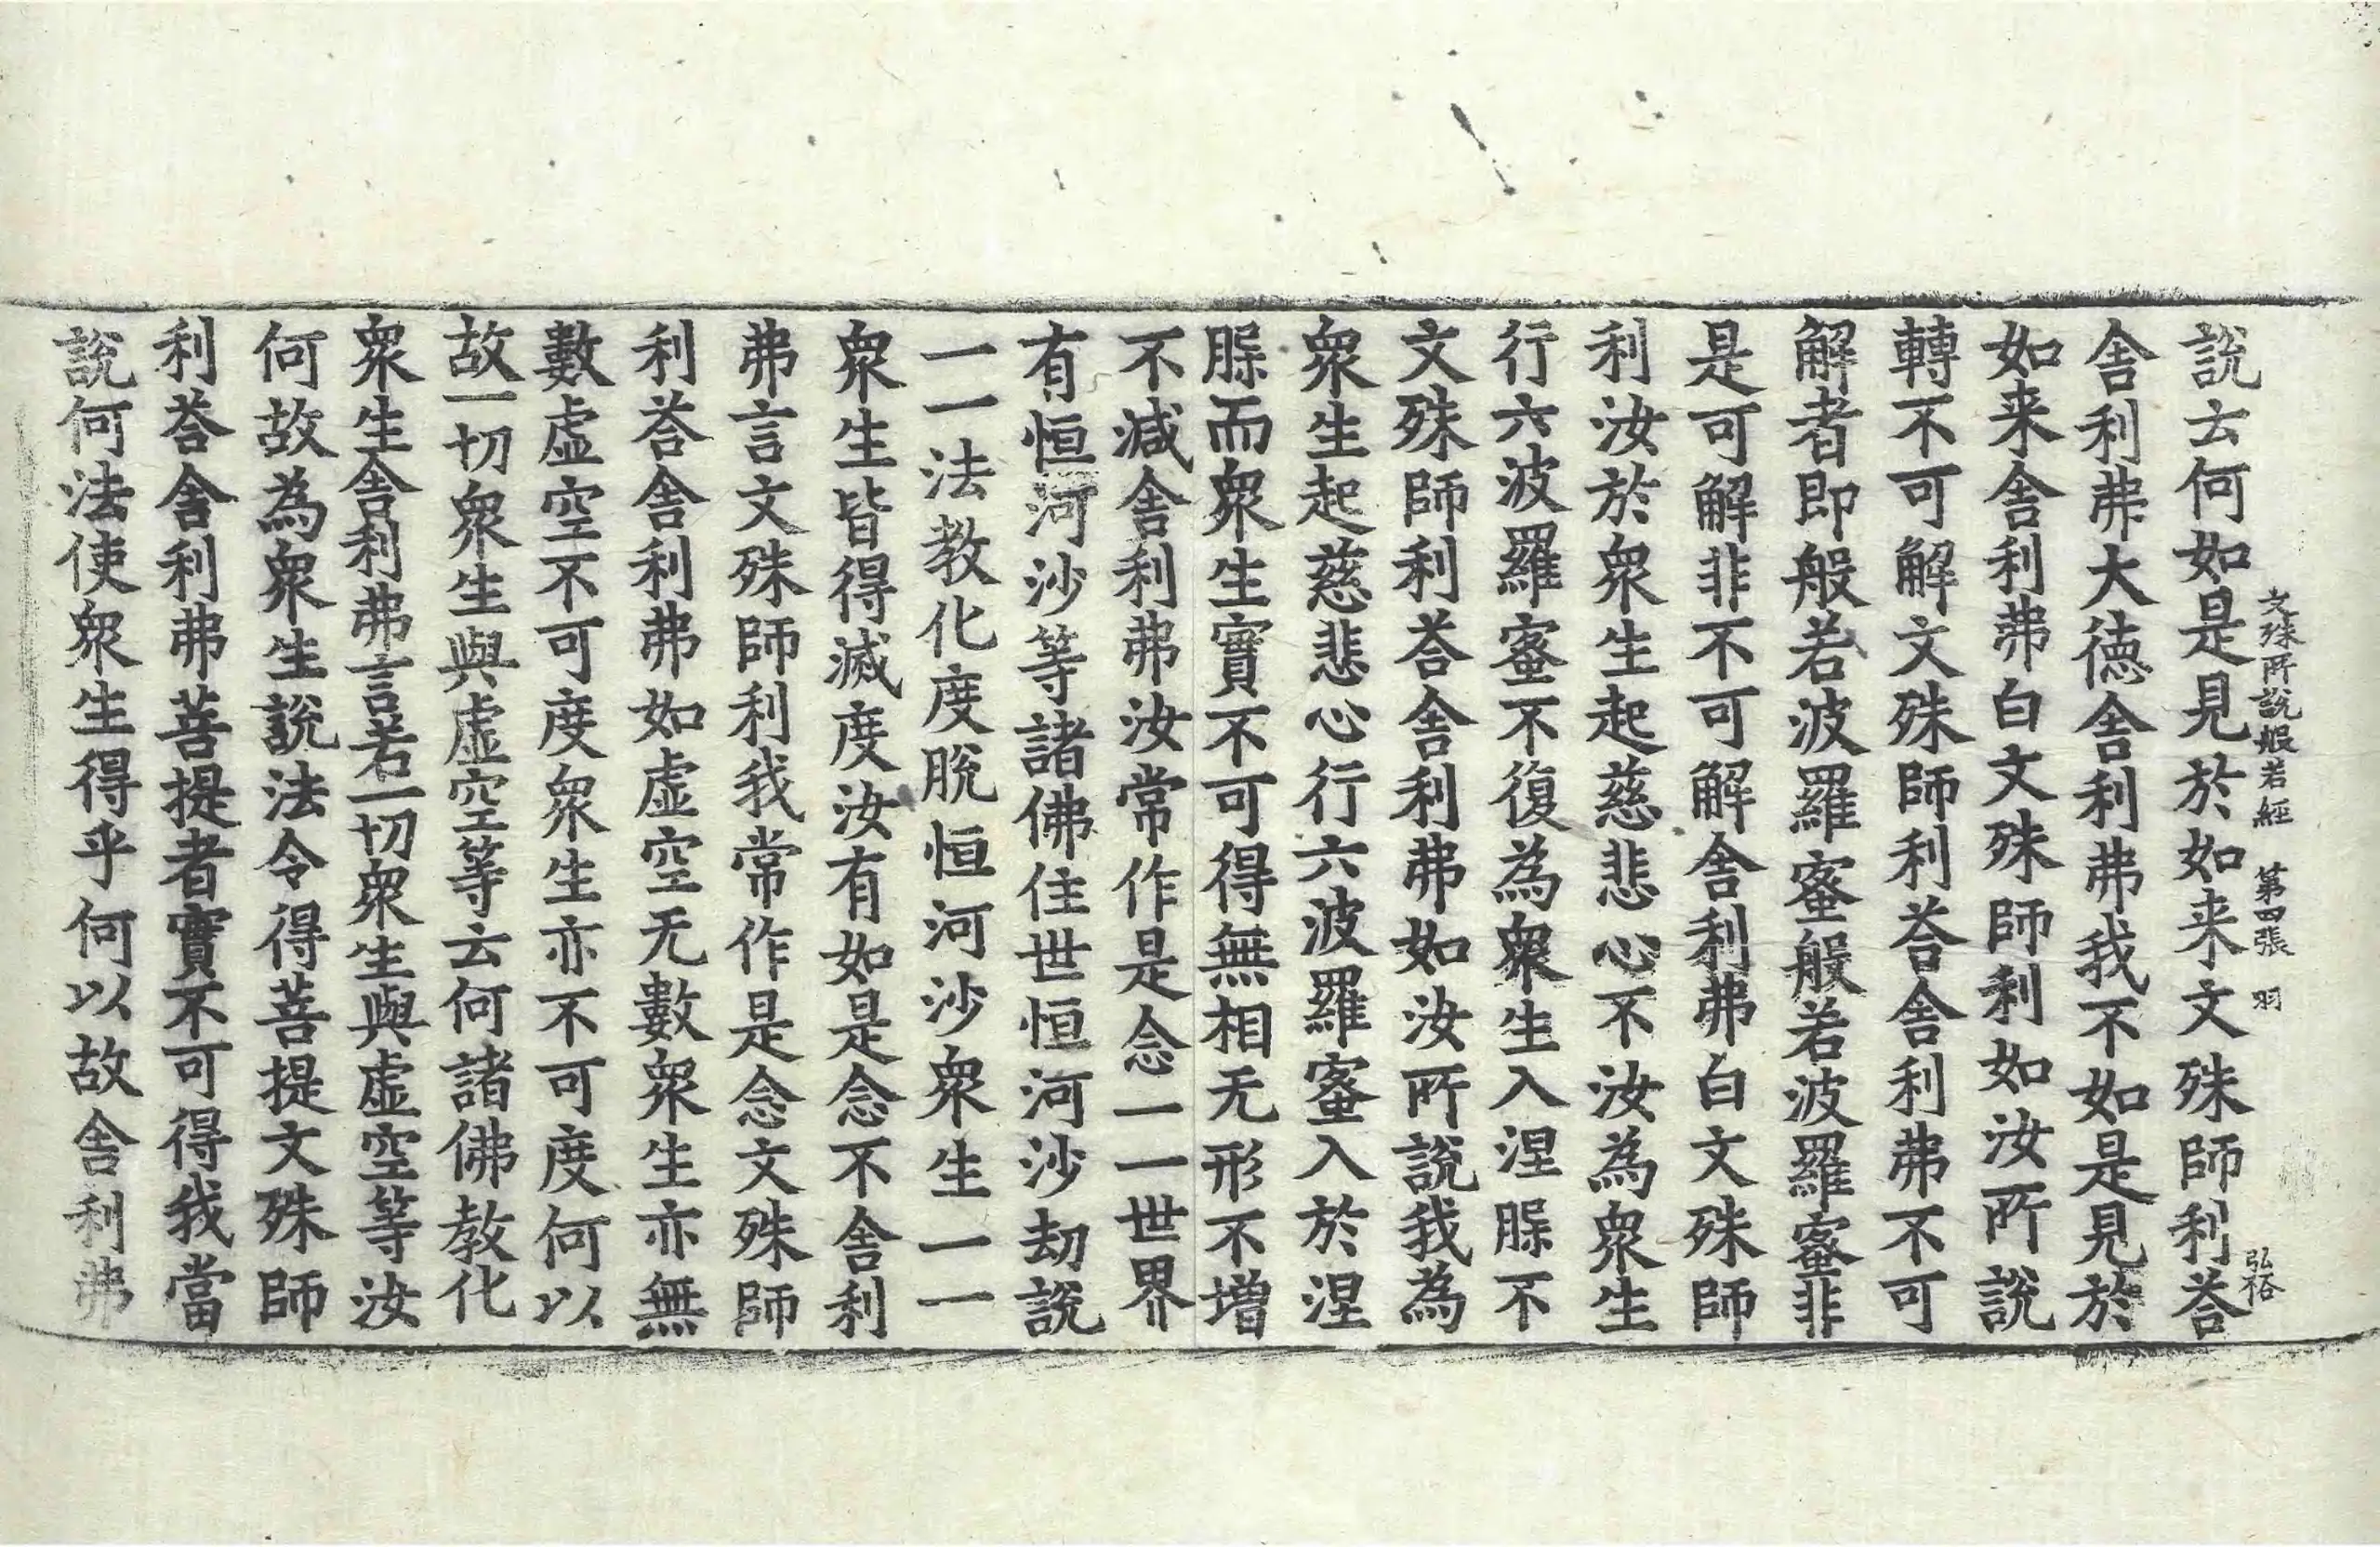 文殊所說般若經 第四張 羽
弘裕
說云何如是見於如来文殊師利荅
舎利弗大徳舎利弗我不如是見於
如来舎利弗白文殊師利如汝所說
轉不可解文殊師利荅舎利弗不可
解者即般若波羅蜜般若波羅蜜非
是可解非不可解舎利弗白文殊師
利汝於衆生起慈悲心不汝為衆生
行六波羅蜜不復為衆生入涅脲不
文殊師利荅舎利弗如汝所說我為
衆生起慈悲心行六波羅蜜入於涅
脲而衆生實不可得無相无形不增
不減舎利弗汝常作是念一一世界
有恒河沙等諸佛住世恒河沙劫說
一一法教化度脫恒河沙衆生一一
衆生皆得滅度汝有如是念不舎利
弗言文殊師利我常作是念文殊師
利荅舎利弗如虛空无數衆生亦無
數虛空不可度衆生亦不可度何以
故一切衆生與虛空等云何諸佛教化
衆生舎利弗言若一切衆生與虛空等汝
何故為衆生說法令得菩提文殊師
利荅舎利弗菩提者實不可得我當
說何法使衆生得乎何以故舎利弗